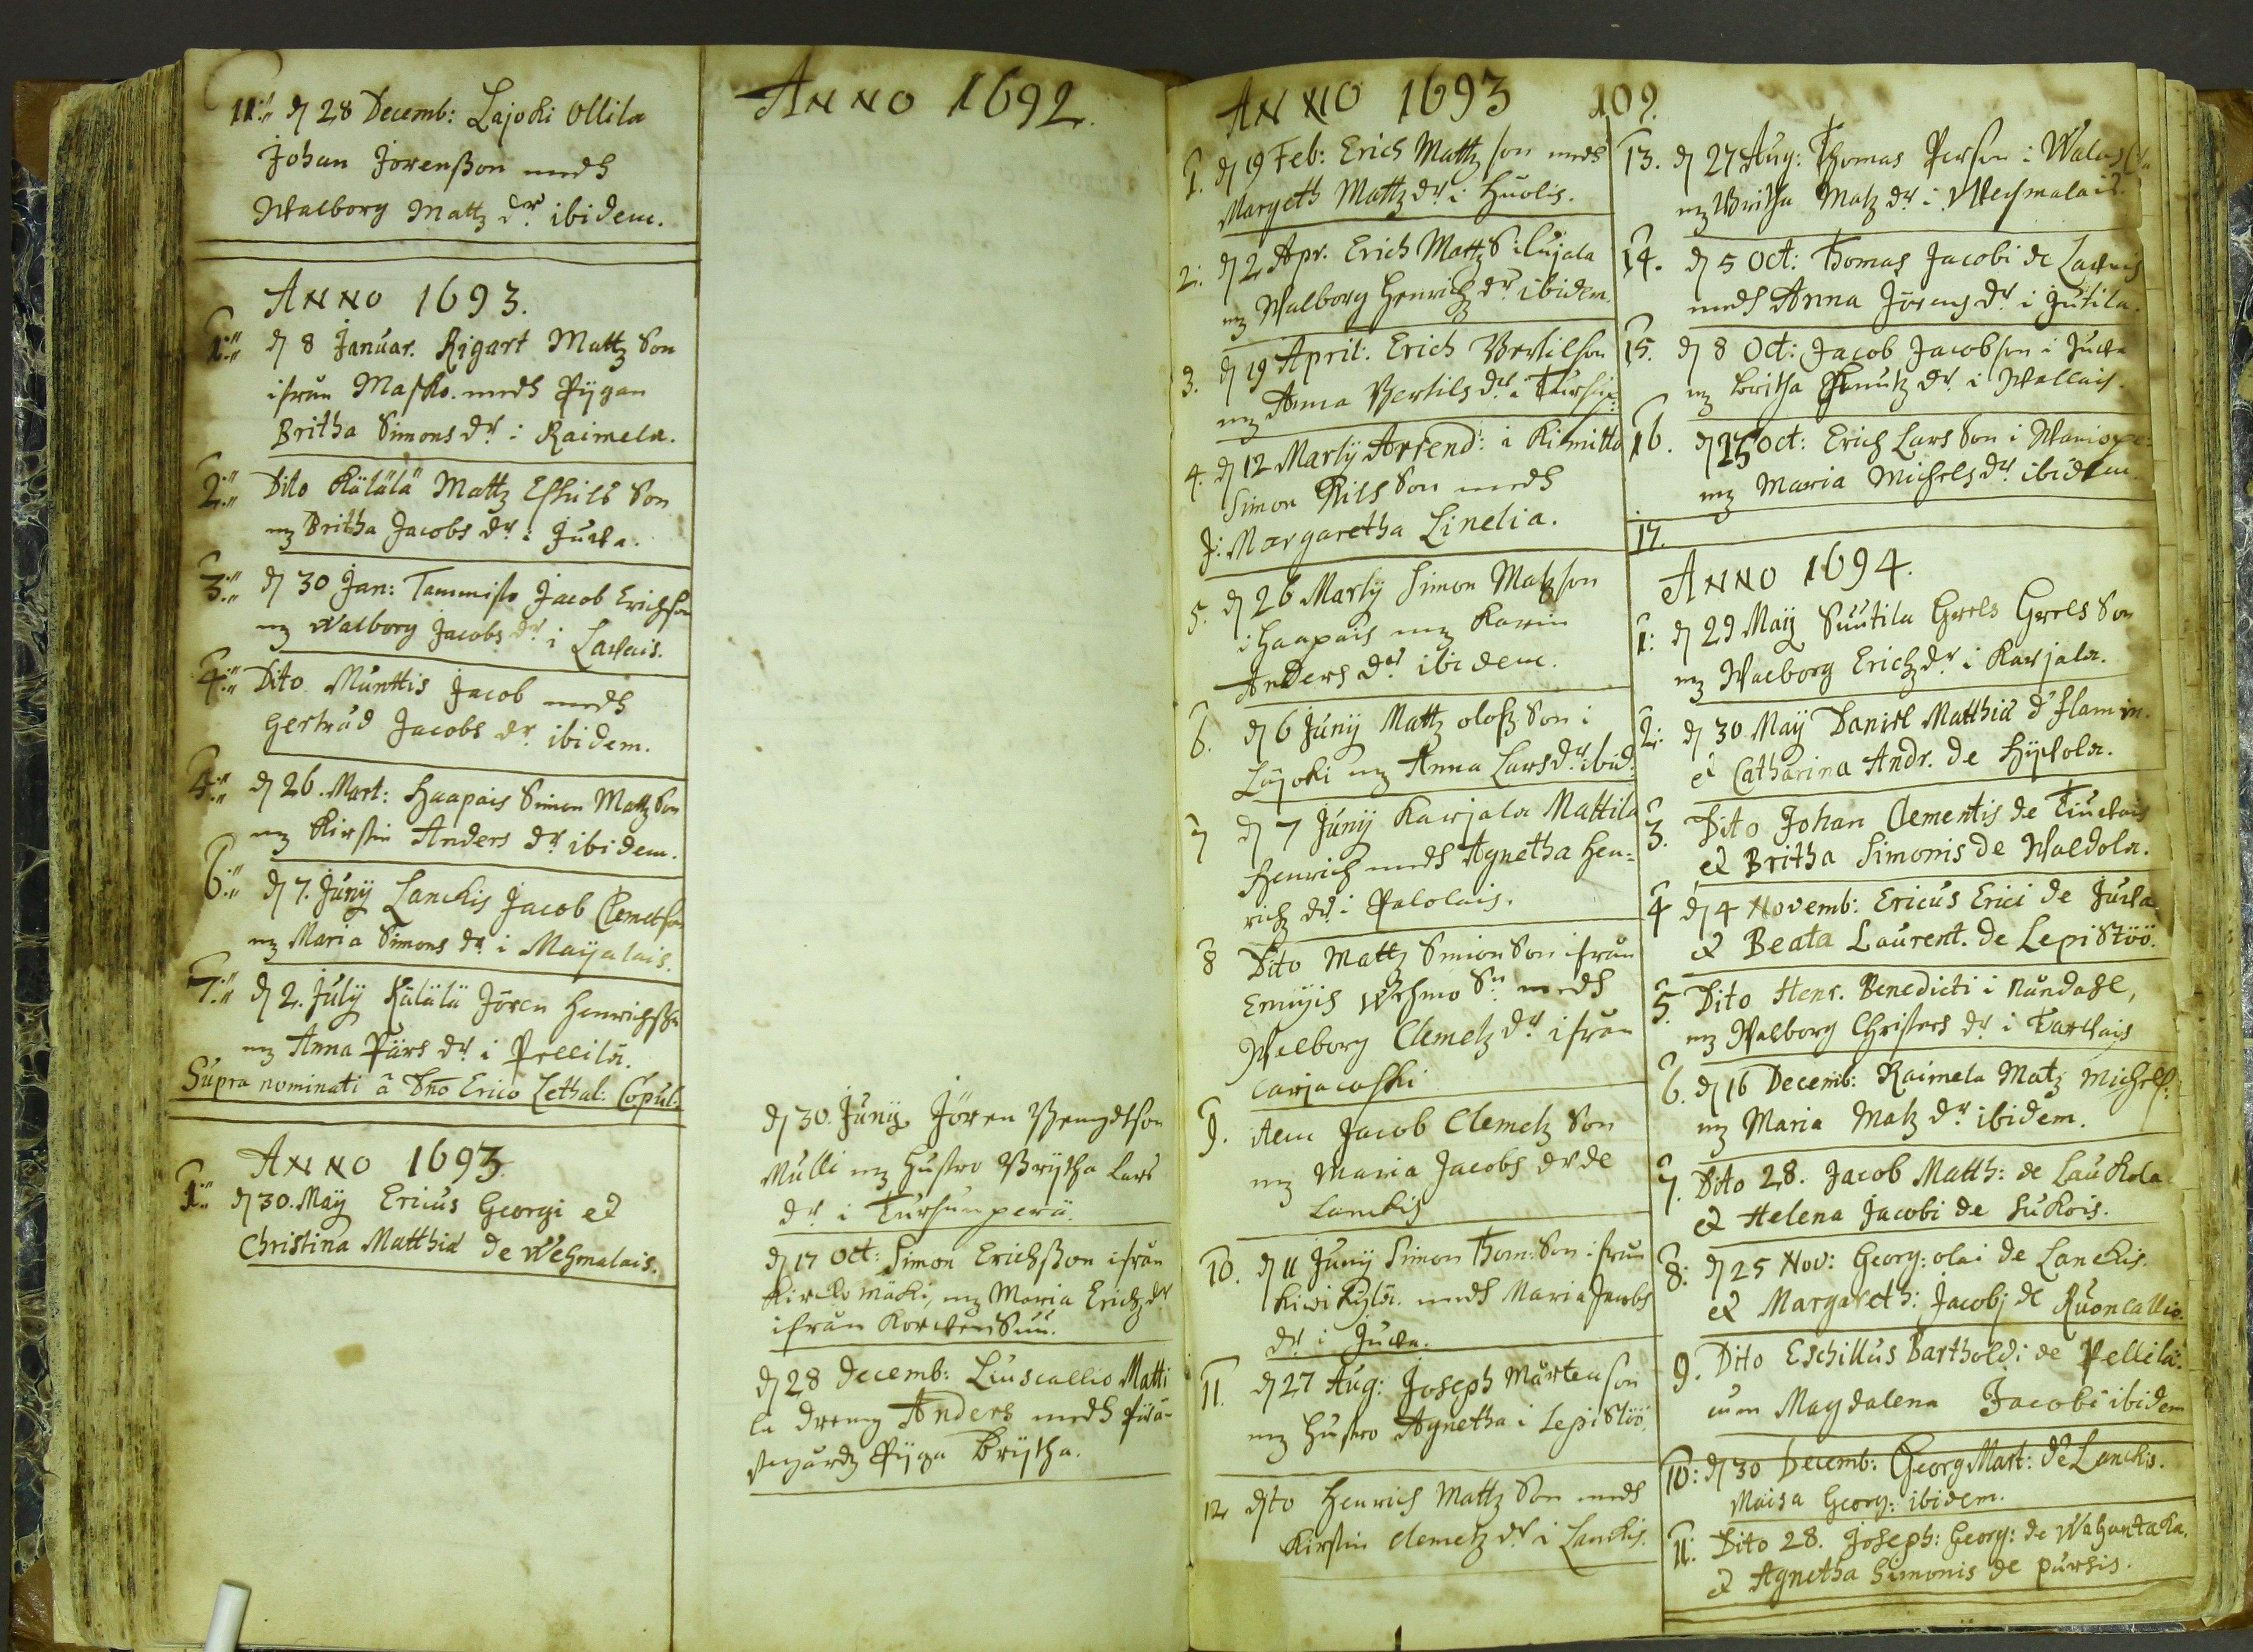 11. d 28 Decemb: Lajoki Ollila
Johan Jörenßon medh
Walborg Mattz dr. ibidem.
ANNO 1693.
1. d 8 Januar. Rigart Mattz Son
ifrån Masko. medh Pijgan
Britha Simons dr i Raimela.
2. Dito Kälälä Mattz Eskils Son
mz Britha Jacobs dr i Juva.
3. d 30 Jan: Tammisto Jacob Erichson
mz Walborg Jacobs dr i Lavais.
4. Dito Munttis Jacob medh
Gertrud Jacobs dr. ibidem.
5. d 26. Mart: Haapais Simon Mattz Son
mz Kirstin Anders dr ibidem.
6. d 7. Junij Lanckis Jacob Clemetson
mz Maria Simons dr i Maijalais.
7. d 2. Julij Kälälä Jören Henrichsson
mz Anna Pärs dr i Pellilä.
Supra nominati â Dno Erico Lethal: Copul:
ANNO 1693.
1. d 30. Maij Ericus Georgi et
Christina Matthiæ de Wehmalais.
ANNO 1692.
d 30. Junij Jören Bengdtson
Mulli mz Hustro Brijtha Lars
dr i Tursunperä.
d 17 Oct: Simon Erichßon ifrån
Kircko mäki, mz Maria Erichz dr
ifrån
d 28 Decemb: Liuscallio Matti
la dreng Anders medh
Pijga Brijtha.
ANNO 1693 109.
1. d 19 Feb: Erich Mattz son medh
Margeth Mattz dr i Huolis.
2. d 2 Apr. Erich Mattz S: i Cujala
mz Walborg Henrichz dr ibidem.
3. d 19 April. Erich Bertilson
mz Anna Bertils dr i
4. d 12 Martij Arrend: i Kimitto
Simon Nils Son medh
J: Margaretha Linelia.
5. d 26 Martij Simon Matz son
i Haapais mz Karin
Anders dr ibidem.
6. d 6 Junij Mattz olofz Son i
Lajoki mz Anna Lars dr ibid:
7 d 7 Junij Karjala Mattila
Henrich medh Agnetha Hen=
richz dr i Palolais.
8 Dito Mattz Simon Son ifrån
Wehmo Sn medh
Walborg Clemetz dr ifrån
Carjacoski
9. Item Jacob Clemetz Son
mz Maria Jacobs dr de
Lanckis
10. d 11 Junij Simon Thom: Son ifrån
Kivikylä. medh Maria Jacobs
dr i Juva.
11. d 27 Aug: Joseph Mårtenson
mz Hustro Agnetha i Lepistöö.
12 dito Henrich Mattz Son medh
Kirstin Clemetz dr i Lanckis.
13. d 27 Aug: Thomas Person i
mz Britha Matz dr i Wehmalais.
14. d 5 Oct: Thomas Jacobi de Lavais
medh Anna Jörens dr i Jutila.
15. d 8 Oct: Jacob Jacobson i Juva
mz Britha Knutz dr i Wallais.
16. d 15 Oct: Erich Lars Son i
mz Maria Michels dr ibidem.
17.
ANNO 1694.
1: d 29 Maij Suutila Grels Grels Son
mz Walborg Erichz dr i Karjala.
2: d 30 Maij Daniel Matthiæ d' Flamin.
et Catharina Andr. de Hypola.
3. Dito Johan Clementis de
et Britha Simonis de Waldola.
4 d 4 Novemb: Ericus Erici de Juva
et Beata Laurent. de Lepistöö.
5. Dito Henr. Benedicti i Nundahl,
mz Walborg Christers dr i Tarvais
6. d 16 Decemb: Raimela Matz Michels:
mz Maria Matz dr ibidem.
7. Dito 28. Jacob Matth: de Laukola
et Helena Jacobi de Sukois.
8: d 25 Nov: Georg: olai de Lanckis.
et Margareth: Jacobj de Ruoncallio.
9. Dito Eschillus Bartholdi de Pellilä.
cum Magdalena Jacobi ibidem
10: d 30 Decemb: Georg Mart: de Lanckis.
Maisa Georg: ibidem.
11. Dito 28. Joseph: Georg: de Wahantaka.
et Agnetha Simonis de pursis.